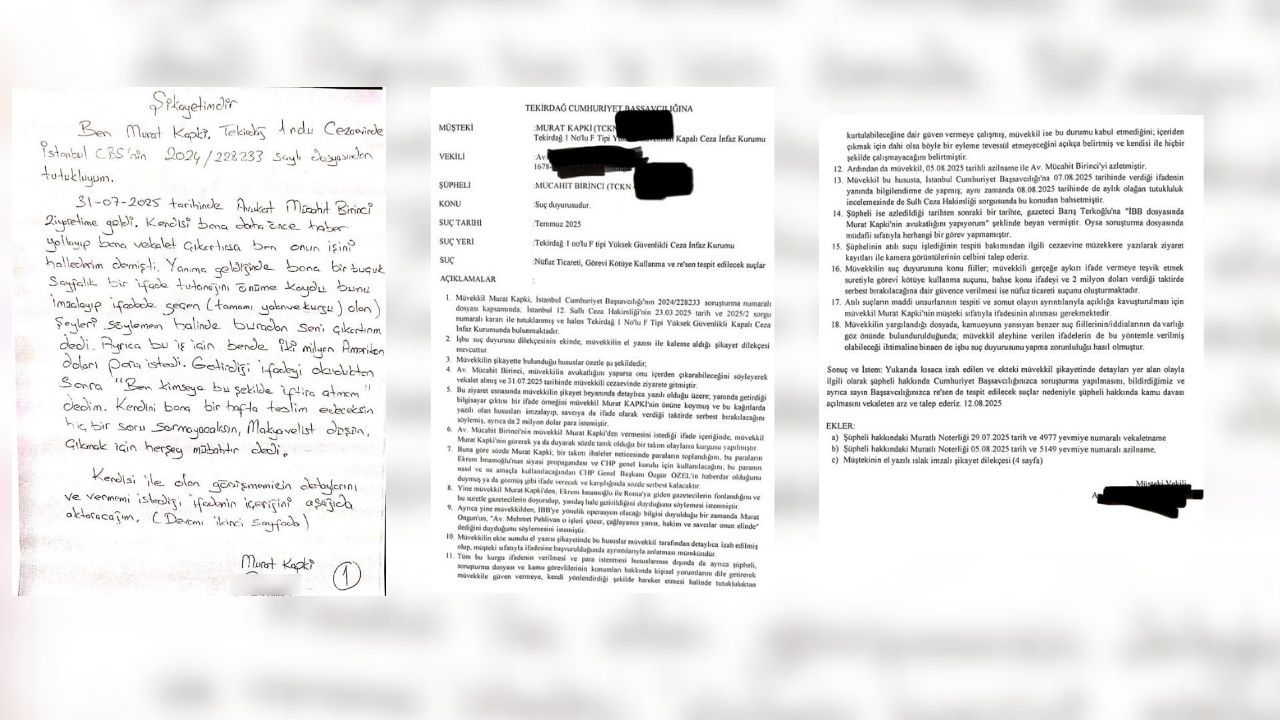 Şikayetimdir
Ben Murat Kapki, Tekirdağ 1 nolu Cezaevinde
İstanbul CBS'nin 2024/228233 sayılı dosyasından
tutukluyum.
31-07-2025 tarihinde Avukat Mücahit Birinci
ziyaretime geldi. Kendisi bana daha önce haber
yollayıp bana vekalet çıkartırsa ben onun işini
hallederim demişti. Yanıma geldiğinde bana bir buçuk
sayfalık bir ifade tutanağı önüme koydu. Bunu
imzalayıp ifadede geçen (tamamı yalan ve kurgu) olan
şeyleri söylemem halinde buradan seni çıkartırım
dedi. Ayrıca bu iş için benden iki milyon Amerikan
doları para istedi. Getirdiği ifadeyi okuduktan
sonra "Ben kimseye bu şekilde iftira atmam"
dedim. Kendini bana bir hafta teslim edeceksin
hiç bir soru sormayacaksın, Makyavelist düşün,
çıkmak için herşey mübahtır dedi.
Kendisi ile olan görüşmemizin detaylarını
ve vermemi istediği ifadenin içeriğini aşağıda
aktaracağım. (Devamı ikinci sayfada)
Murat Kapki
1
TEKİRDAĞ CUMHURİYET BAŞSAVCILIĞINA
MÜŞTEKİ :MURAT KAPKİ (TCKN
Tekirdağ 1 No'lu F Tipi Yüksek Güvenlikli Kapalı Ceza İnfaz Kurumu
VEKİLİ :Av
1678
ŞÜPHELİ :MÜCAHİT BİRİNCİ (TCKN
KONU :Suç duyurusudur.
SUÇ TARİHİ :Temmuz 2025
SUÇ YERİ :Tekirdağ 1 no'lu F tipi Yüksek Güvenlikli Ceza İnfaz Kurumu
SUÇ :Nüfuz Ticareti, Görevi Kötüye Kullanma ve re'sen tespit edilecek suçlar
AÇIKLAMALAR :
1. Müvekkil Murat Kapki, İstanbul Cumhuriyet Başsavcılığı'nın 2024/228233 soruşturma numaralı
dosyası kapsamında; İstanbul 12. Sulh Ceza Hakimliği'nin 23.03.2025 tarih ve 2025/2 sorgu
numaralı kararı ile tutuklanmış ve halen Tekirdağ 1 No'lu F Tipi Yüksek Güvenlikli Kapalı Ceza
İnfaz Kurumunda bulunmaktadır.
2. İşbu suç duyurusu dilekçesinin ekinde, müvekkilin el yazısı ile kaleme aldığı şikayet dilekçesi
mevcuttur.
3. Müvekkilin şikayette bulunduğu hususlar özetle şu şekildedir;
4. Av. Mücahit Birinci, müvekkilin avukatlığını yaparsa onu içerden çıkarabileceğini söyleyerek
vekalet almış ve 31.07.2025 tarihinde müvekkili cezaevinde ziyarete gitmiştir.
5. Bu ziyaret esnasında müvekkilin şikayet beyanında detaylıca yazılı olduğu üzere; yanında getirdiği
bilgisayar çıktısı bir ifade örneğini müvekkil Murat KAPKİ'nin önüne koymuş ve bu kağıtlarda
yazılı olan hususları imzalayıp, savcıya da ifade olarak verdiği taktirde serbest bırakılacağını
söylemiş, ayrıca da 2 milyon dolar para istemiştir.
6. Av. Mücahit Birinci'nin müvekkil Murat Kapki'den vermesini istediği ifade içeriğinde, müvekkil
Murat Kapki'nin görerek ya da duyarak sözde tanık olduğu bir takım olayların kurgusu yapılmıştır.
7. Buna göre sözde Murat Kapki; bir takım ihaleler neticesinde paraların toplandığını, bu paraların
Ekrem İmamoğlu'nun siyasi propagandası ve CHP genel kurulu için kullanılacağını, bu paranın
nasıl ve ne amaçla kullanılacağından CHP Genel Başkanı Özgür ÖZEL'in haberdar olduğunu
duymuş ya da görmüş gibi ifade verecek ve karşılığında sözde serbest kalacaktır.
8. Yine müvekkil Murat Kapki'den, Ekrem İmamoğlu ile Roma'ya giden gazetecilerin fonlandığını ve
bu suretle gazetecilerin doyurulup, yandaş hale getirildiğini duyduğunu söylemesi istenmiştir.
9. Ayrıca yine müvekkilden, İBB'ye yönelik operasyon olacağı bilgisi duyulduğu bir zamanda Murat
Ongun'un, "Av. Mehmet Pehlivan o işleri çözer, çağlayanın yarısı, hakim ve savcılar onun elinde"
dediğini duyduğunu söylemesini istemiştir.
10. Müvekkilin ekte sunulu el yazısı şikayetinde bu hususlar müvekkil tarafından detaylıca izah edilmiş
olup, müşteki sıfatıyla ifadesine başvurulduğunda ayrıntılarıyla anlatması mümkündür.
11. Tüm bu kurgu ifadenin verilmesi ve para istenmesi hususlarının dışında da ayrıca şüpheli,
soruşturma dosyası ve kamu görevlilerinin konumları hakkında kişisel yorumlarını dile getirerek
müvekkile güven vermeye, kendi yönlendirdiği şekilde hareket etmesi halinde tutukluluktan
kurtulabileceğine dair güven vermeye çalışmış, müvekkil ise bu durumu kabul etmediğini; içeriden
çıkmak için dahi olsa böyle bir eyleme tevessül etmeyeceğini açıkça belirtmiş ve kendisi ile hiçbir
şekilde çalışmayacağını belirtmiştir.
12. Ardından da müvekkil, 05.08.2025 tarihli azilname ile Av. Mücahit Birinci'yi azletmiştir.
13. Müvekkil bu hususta, İstanbul Cumhuriyet Başsavcılığı'na 07.08.2025 tarihinde verdiği ifadenin
yanında bilgilendirme de yapmış; aynı zamanda 08.08.2025 tarihinde de aylık olağan tutukluluk
incelemesinde de Sulh Ceza Hakimliği sorgusunda bu konudan bahsetmiştir.
14. Şüpheli ise azledildiği tarihten sonraki bir tarihte, gazeteci Barış Terkoğlu'na "İBB dosyasında
Murat Kapki'nin avukatlığını yapıyorum" şeklinde beyan vermiştir. Oysa soruşturma dosyasında
müdafii sıfatıyla herhangi bir görev yapmamıştır.
15. Şüphelinin atılı suçu işlediğinin tespiti bakımından ilgili cezaevine müzekkere yazılarak ziyaret
kayıtları ile kamera görüntülerinin celbini talep ederiz.
16. Müvekkilin suç duyurusuna konu fiiller; müvekkili gerçeğe aykırı ifade vermeye teşvik etmek
suretiyle görevi kötüye kullanma suçunu, bahse konu ifadeyi ve 2 milyon doları verdiği taktirde
serbest bırakılacağına dair güvence verilmesi ise nüfuz ticareti suçunu oluşturmaktadır.
17. Atılı suçların maddi unsurlarının tespiti ve somut olayın ayrıntılarıyla açıklığa kavuşturulması için
müvekkil Murat Kapki'nin müşteki sıfatıyla ifadesinin alınması gerekmektedir.
18. Müvekkilin yargılandığı dosyada, kamuoyuna yansıyan benzer suç fiillerinin/iddialarının da varlığı
göz önünde bulundurulduğunda; müvekkil aleyhine verilen ifadelerin de bu yöntemle verilmiş
olabileceği ihtimaline binaen de işbu suç duyurusunu yapma zorunluluğu hasıl olmuştur.
Sonuç ve İstem: Yukarıda kısaca izah edilen ve ekteki müvekkil şikayetinde detayları yer alan olayla
ilgili olarak şüpheli hakkında Cumhuriyet Başsavcılığınızca soruşturma yapılmasını, bildirdiğimiz ve
ayrıca sayın Başsavcılığınızca re'sen de tespit edilecek suçlar nedeniyle şüpheli hakkında kamu davası
açılmasını vekaleten arz ve talep ederiz. 12.08.2025
EKLER:
a) Şüpheli hakkındaki Muratlı Noterliği 29.07.2025 tarih ve 4977 yevmiye numaralı vekaletname
b) Şüpheli hakkındaki Muratlı Noterliği 05.08.2025 tarih ve 5149 yevmiye numaralı azilname,
c) Müştekinin el yazılı ıslak imzalı şikayet dilekçesi (4 sayfa)
Müşteki Vekili
A